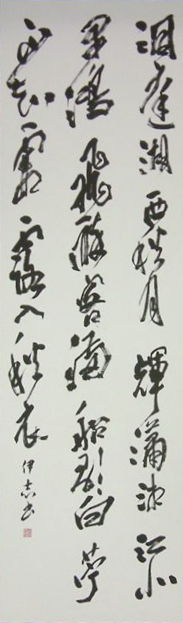 洞庭湖西秋月輝瀟湘江北
早鴻飛醉客滿船歌白苧
不知霜露入秋衣